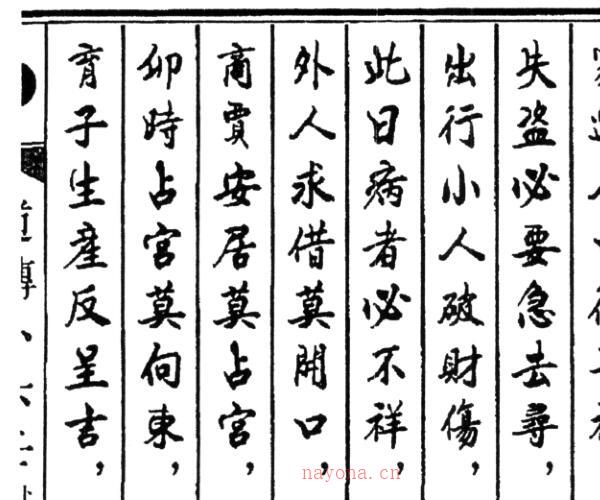 失盜必要急去尋，
出行小人破財傷，
此日病者必不祥，
外人求借莫開口，
商賈安居莫占宮，
卯時占宮莫向東，
育子生產反呈吉，
nayona.cn